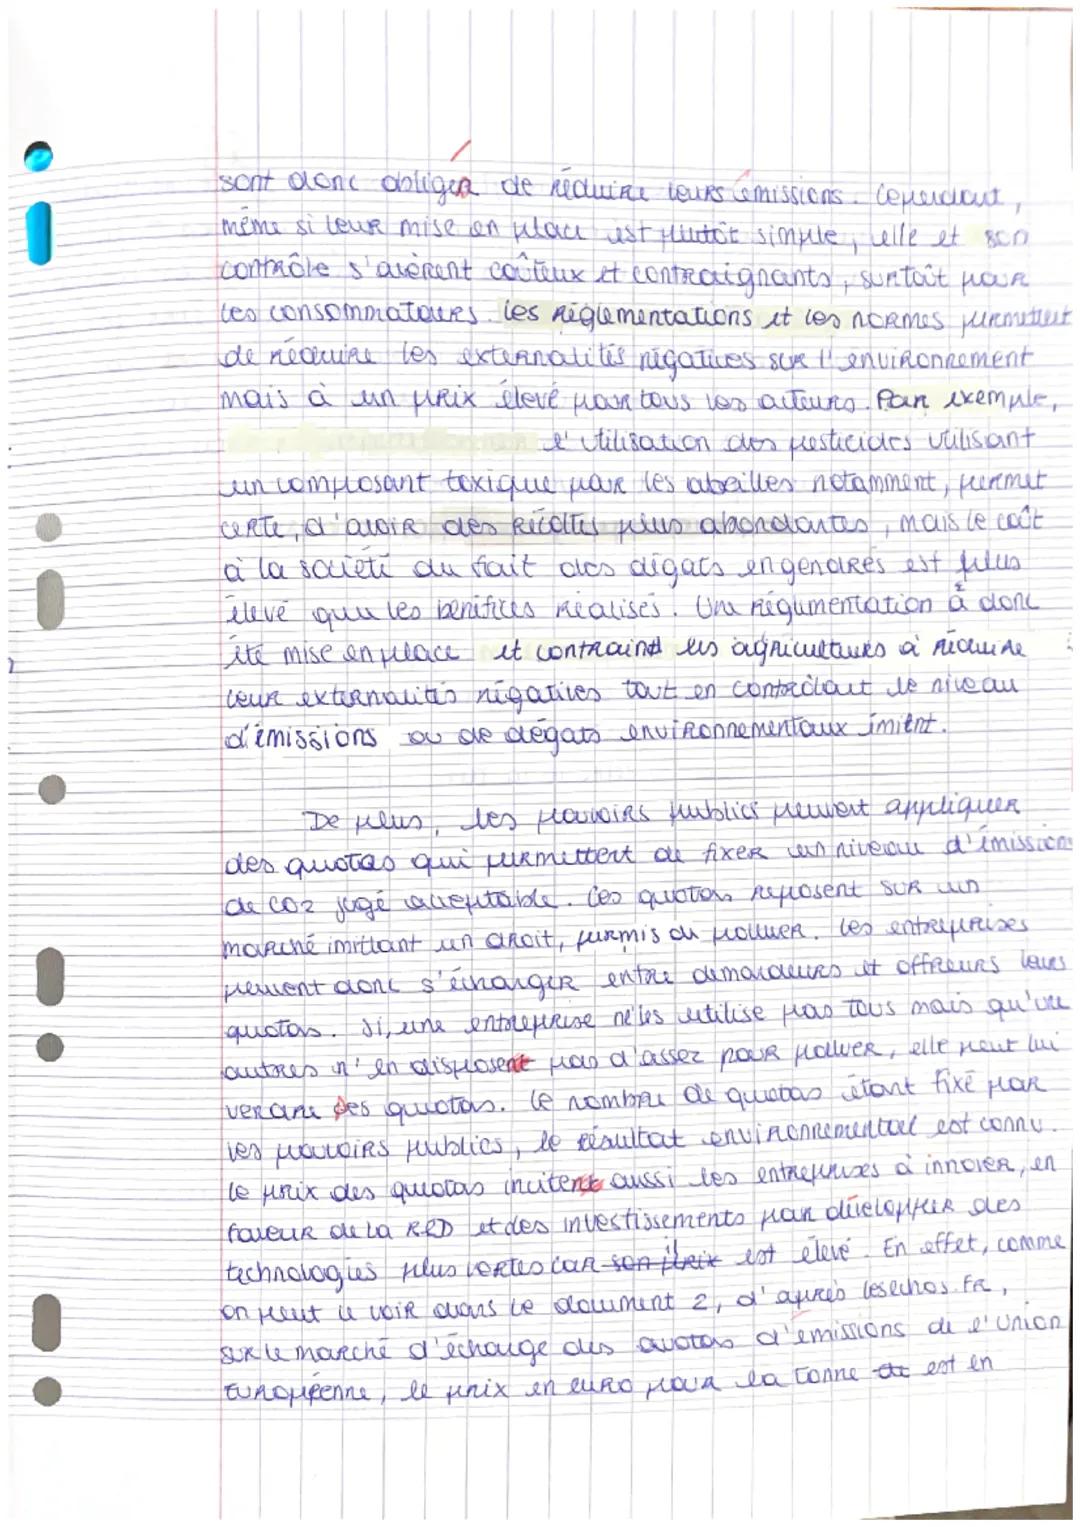 sont donc obliger de réduire leurs émissions. Cependant,
même si leur mise en place est plutôt simple, elle et son
contrôle s'avèrent coûteux et contraignants, surtoût pour
les consommateurs. Les réglementations et les normes permettent
de réduire les externalités négatives sur l'environnement
mais à un prix élevé pour tous les acteurs. Par exemple,
l'utilisation des pesticides utilisant
un composant toxique pour les abeilles notamment, permet
certe, d'avoir des récoltes plus abondantes, mais le coût
à la société du fait des dégats engendrés est plus
élevé que les bénéfices réalisés. Une régumentation à donc
été mise en place et contraint les agriculteurs à réduire
leur externalités négatives tout en contrôlant le niveau
d'émissions ou de dégats environnementaux émient.
De plus, les pouvoirs publics peuvent appliquer
des quotas qui permettent de fixer un niveau d'émissions
de CO2 jugé acceptable. Ces quotas reposent sur un
marché imittant un droit, permis du polluer. Les entreprises
peuvent donc s'échanger entre demandeurs et offreurs leurs
quotas. Si, une entreprise ne les utilise pas tous mais qu'une
autres n'en disposent pas d'assez pour polluer, elle peut lui
vendre ses quotas. Le nombre de quotas étant fixé par
les pouvoirs publics, le résultat environnemental est connu.
Le prix des quotas incitent aussi les entreprises à innover, en
faveur de la R&D et des investissements pour développer des
technologies plus vertes car son prix il est élevé. En effet, comme
on peut le voir dans le document 2, d'après lesechos.fr,
sur le marché d'échange des quotas d'émissions de l'Union
Européenne, le prix en euro pour la tonne est en